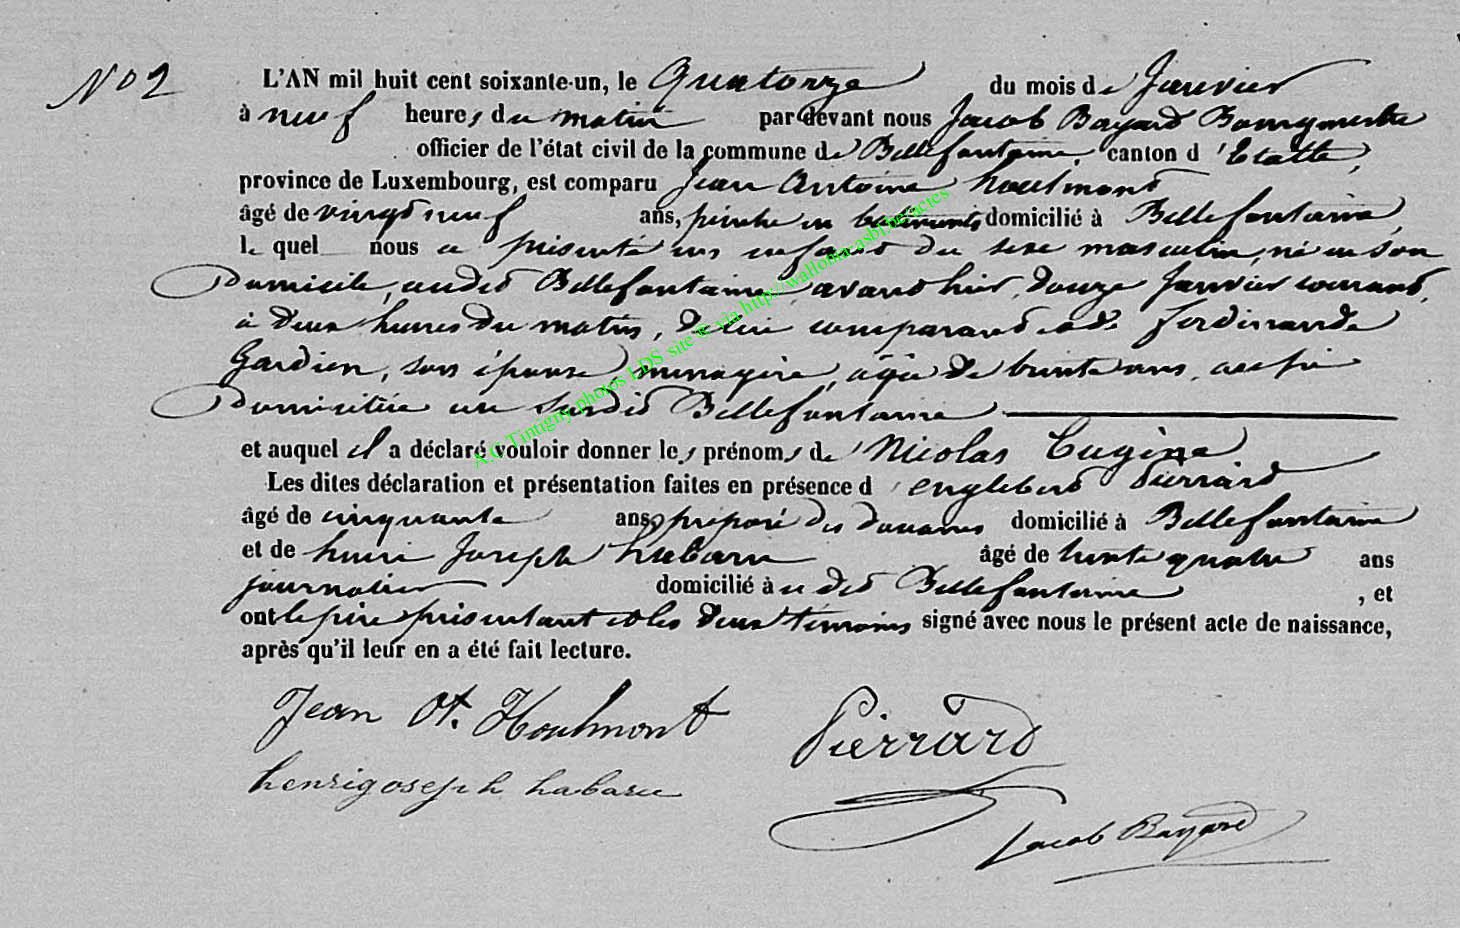 No 2
L'AN mil huit cent soixante-un, le Quatorze du mois de Janvier
à neuf heures du matin par devant nous Jacob Bayard Bourgmestre
officier de l'état civil de la commune de Bellefontaine, canton d'Etalle,
province de Luxembourg, est comparu Jean Antoine houlmont
âgé de vingt neuf ans, peintre en batiments domicilié à Bellefontaine,
le quel nous a présenté un enfant du sexe masculin, né en son
Domicile, audit Bellefontaine, avant hier, douze Janvier courant,
à deux heures du matin, de lui comparant et de ferdinande
Gardien, son épouse, ménagère, agée de trente ans, aussi
Domiciliée au susdit Bellefontaine
et auquel il a déclaré vouloir donner les prénoms de Nicolas Eugène
Les dites déclaration et présentation faites en présence d'englebert Pierrard
âgé de cinquante ans, préposé des douanes domicilié à Bellefontaine
et de henri Joseph habaru âgé de trente quatre ans
journalier domicilié à u dit Bellefontaine, et
ont le père présentant et les deux témoins signé avec nous le présent acte de naissance,
après qu'il leur en a été fait lecture.
Jean At. Houlmont Pierrard
henri goseph habaru
Jacob Bayard
A.C Tintigny photos LDS site & via http://wallonia.asbl.be/actes